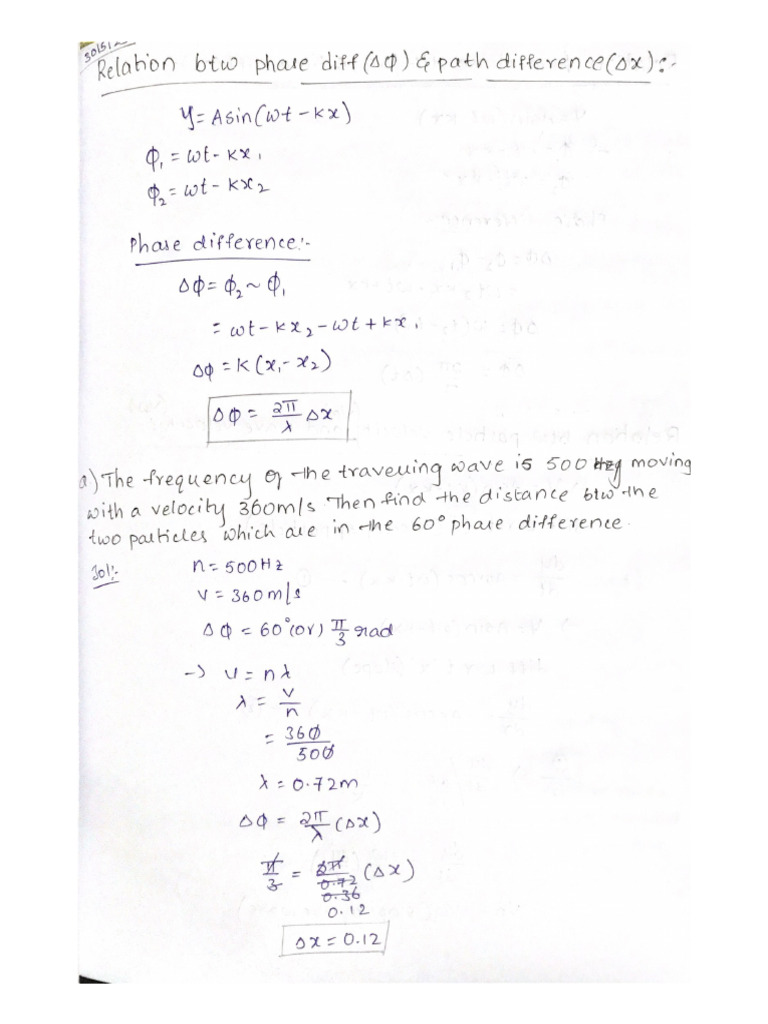 Relation btw phase diff (Δφ) & path difference (Δx):-
y = A sin(ωt - kx)
φ₁ = ωt - kx₁
φ₂ = ωt - kx₂
Phase difference:-
Δφ = φ₂ ~ φ₁
= ωt - kx₂ - ωt + kx₁
Δφ = k(x₁ - x₂)
Δφ = 2π/λ Δx
a) The frequency of the travelling wave is 500 Hz moving
with a velocity 360m/s. Then find the distance btw the
two particles which are in the 60° phase difference.
Sol:-
n = 500Hz
v = 360m/s
Δφ = 60° (or) π/3 rad
→ v = nλ
λ = v/n
= 360/500
λ = 0.72m
Δφ = 2π/λ (Δx)
π/3 = 2π/0.72 (Δx)
0.36
0.12
Δx = 0.12